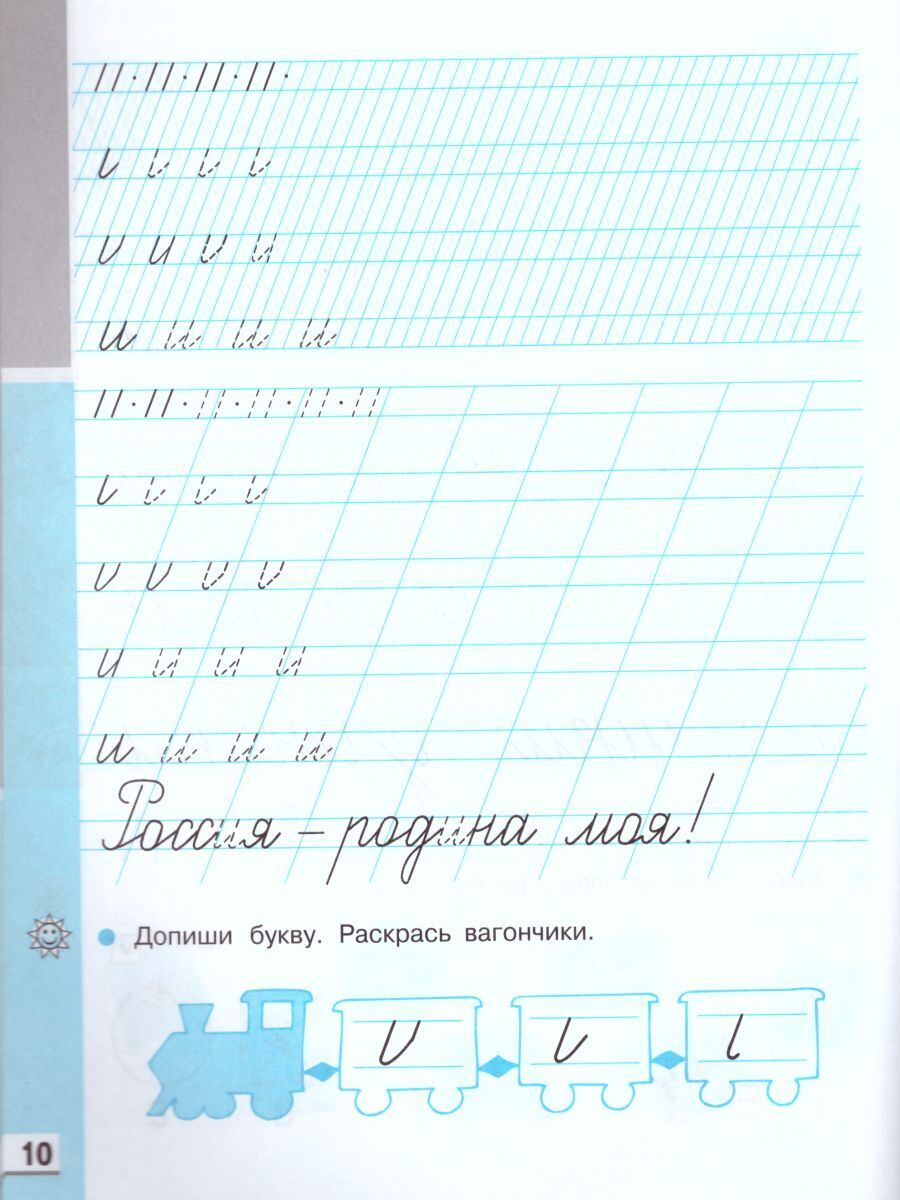 и и и и
Россия – родина моя!
Допиши букву. Раскрась вагончики.
10